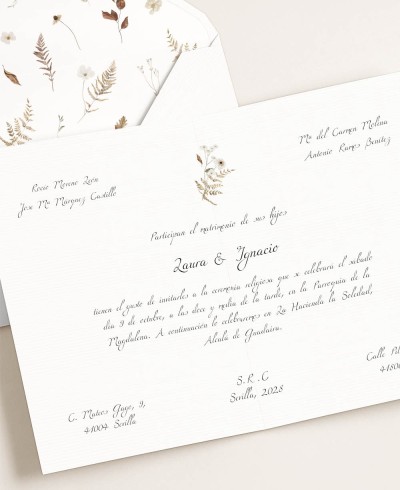 Mª del Carmen Molina
Antonio Ramos Benítez
Rocío Moreno León
Jose Mª Márquez Castillo
Participan el matrimonio de sus hijos
Laura & Ignacio
tienen el gusto de invitarles a la ceremonia religiosa que se celebrará el sábado
día 9 de octubre, a las doce y media de la tarde, en la Parroquia de la
Magdalena. A continuación lo celebraremos en La Hacienda la Soledad,
Alcalá de Guadaíra.
S. R. C
Sevilla, 2028
C. Mateos Gago, 9,
41004 Sevilla
Calle